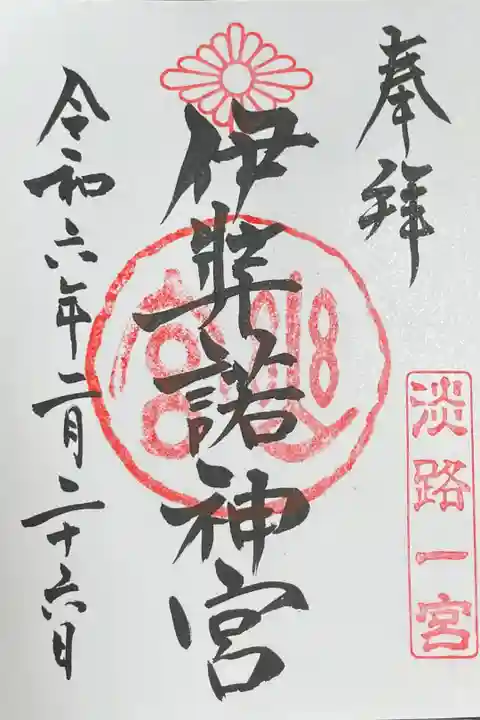 奉拜
淡路一宮
伊弉諾神宮
令和六年二月二十六日